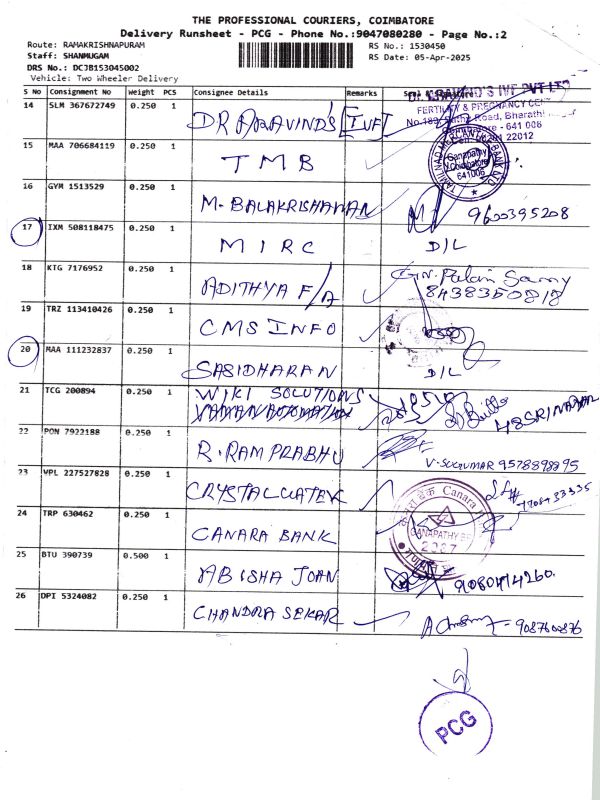 THE PROFESSIONAL COURIERS, COIMBATORE
Delivery Runsheet - PCG - Phone No.:9047080280 - Page No.:2
Route: RAMAKRISHNAPURAM
RS No.: 1530450
Staff: SHANMUGAM
RS Date: 05-Apr-2025
DRS No.: DCJB153045002
Vehicle: Two Wheeler Delivery
S No Consignment No Weight PCS Consignee Details Remarks
14 SLM 367672749 0.250 1 DR ARAVIND'S IVF
FERTILITY & PREGNANCY
Coimbatore - 641 006
15 MAA 706684119 0.250 1 TMB
Ganapathy
Coimbatore
641006
16 GYM 1513529 0.250 1 M. BALAKRISHANAN 9600395208
17 IXM 508118475 0.250 1 MIRC D/L
18 KTG 7176952 0.250 1 ADITHYA F/A
8438350818
19 TRZ 113410426 0.250 1 CMS INFO
20 MAA 111232837 0.250 1 SASIDHARAN D/L
21 TCG 200894 0.250 1 WIKI SOLUTIONS
48 SRI NAGAR
22 PON 7922188 0.250 1 R. RAM PRABHU
V. SUGUMAR 9578898295
23 VPL 227527828 0.250 1 CRYSTAL WATER
24 TRP 630462 0.250 1 CANARA BANK
Canara
GANAPATHY
2367
25 BTU 390739 0.500 1 ABISHA JOAN 9080414260
26 DPI 5324082 0.250 1 CHANDRA SEKAR 9087600876
PCG